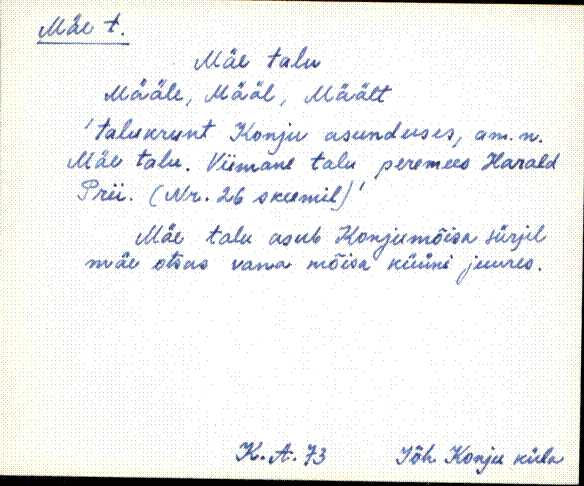 Mäe t.
Mäe talu
Määle, Määl, Mäält
'talukrunt Konju asunduses, am. n.
Mäe talu. Viimane talu peremees Harald
Prii. (Nr. 26 skeemil)'
Mäe talu asub Konjumõisa sürjil
mäe otsas vana mõisa küüni juures.
K. A. 73 Jõh Konju küla